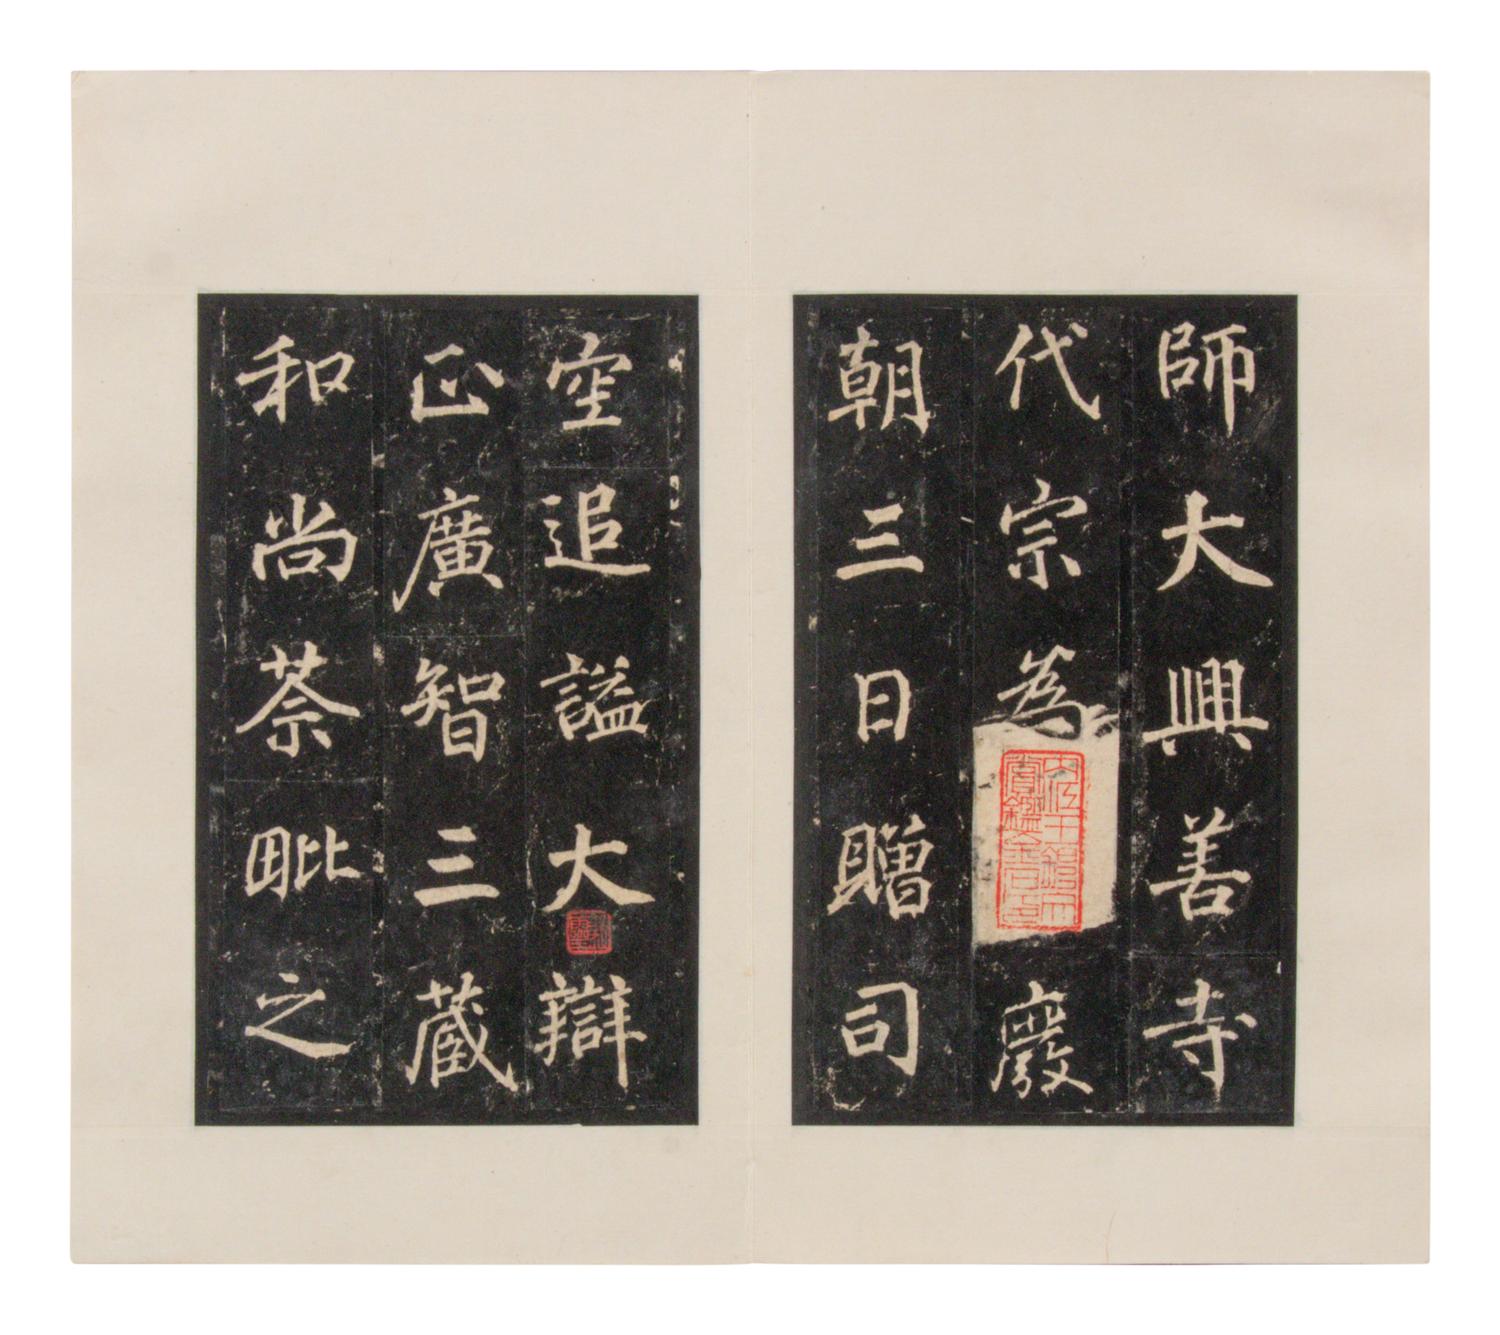 師大興善寺
代宗為廢
朝三日贈司
空追謚大辯
正廣智三藏
和尚荼毗之